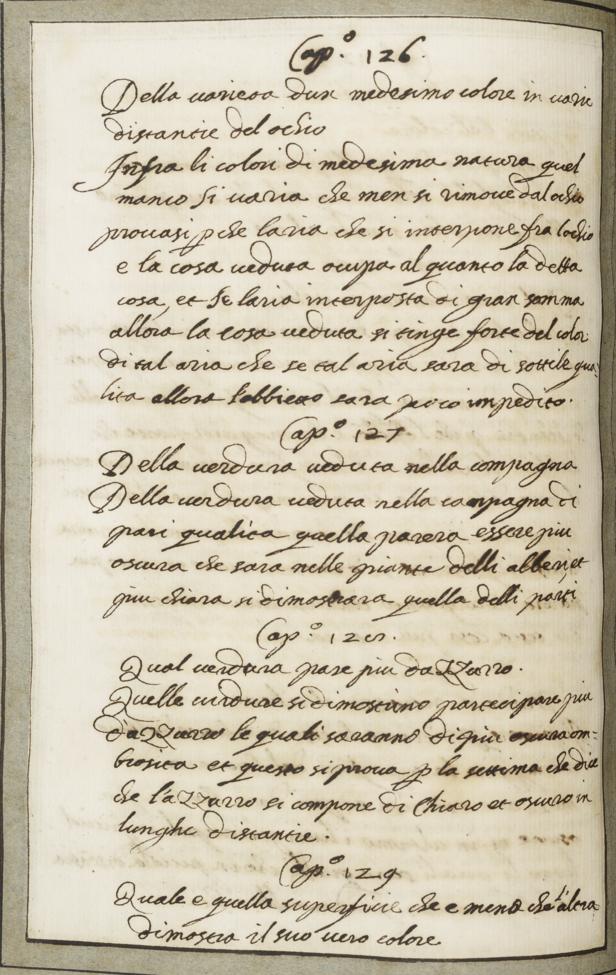 Cap.º 126.
Della varietà d'un medesimo colore in varie
distantie del ochio
Infra li colori di medesima natura quel
manco si varia che men si rimove dal ochio
provasi p che laria che si interpone fra lochio
e la cosa veduta ocupa al quanto la detta
cosa, et se laria interposta di gran somma
allora la cosa veduta si tinge forte del color
di tal aria che se tal aria sara di sottile qua-
lita allora l'obbietto sara poco impedito.
Cap.º 127
Della verdura veduta nella compagna
Della verdura veduta nella campagna di
pari qualita quella parera essere piu
oscura che sara nelle piante delli alberi, et
piu chiara si dimostrara quella delli parti
Cap.º 128.
Qual verdura pare piu dazzurro.
Quelle verdure si dimostrano partecipare piu
dazzurro le quali saranno di piu oscura om-
brosita et questo si prova p la settima che dice
che l'azzurro si compone di chiaro et oscuro in
lunghe distantie.
Cap.º 129
Quale e quella superficie che e meno che l'altra
dimostra il suo vero colore